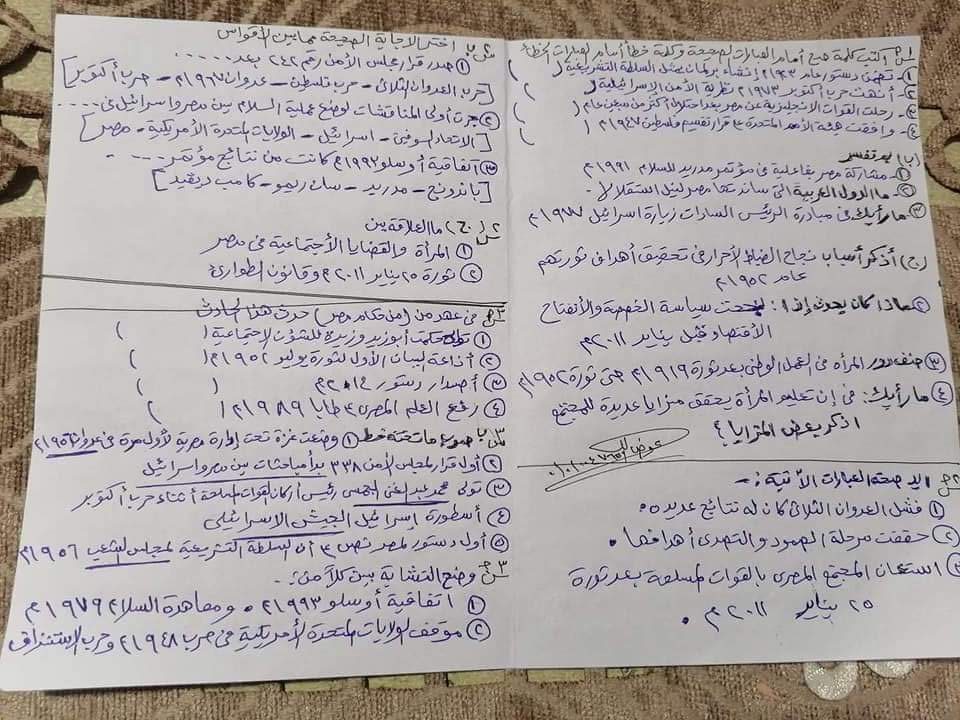 س١ أ) اكتب كلمة صح أمام العبارات الصحيحة وكلمة خطأ أمام العبارات الخطأ
١- تضمن دستور عام ١٩٢٣م إنشاء برلمان يمثل السلطة التشريعية ( )
٢- أنهت حرب أكتوبر ١٩٧٣م نظرية الأمن الإسرائيلية ( )
٣- رحلت القوات الإنجليزية عن مصر بعد احتلال أكثر من سبعين عام ( )
٤- وافقت هيئة الأمم المتحدة ع قرار تقسيم فلسطين ١٩٤٧م ( )
(ب) بم تفسر
١- مشاركة مصر بفاعلية في مؤتمر مدريد للسلام ١٩٩١م
٢- ما الدول العربية التي ساندتها مصر لنيل استقلالها
٣- ما رأيك في مبادرة الرئيس السادات زيارة اسرائيل ١٩٧٧م
(ج) أذكر أسباب نجاح الضباط الأحرار في تحقيق أهداف ثورتهم
عام ١٩٥٢م
٢ ماذا كان يحدث إذا: نجحت سياسة الخصخصة والأنفتاح
الأقتصادي قبل يناير ٢٠١١م
٣ صنف دور المرأه في العمل الوطني بعد ثورة ١٩١٩م حتى ثورة ١٩٥٢م
٤ ما رأيك: في إن تعليم المرأة يحقق مزايا عديدة للمجتمع
اذكر بعض المزايا؟
س٢ أ) دلل ع صحة العبارات الآتية:-
١ فشل العدوان الثلاثي كان له نتائج عديده
٢ حققت مرحلة الصمود والتصدي أهدافها.
٣ استعان المجتمع المصري بالقوات المسلحة بعد ثورة
٢٥ يناير ٢٠١١م.
س٢ ب) اختر الإجابة الصحيحة مما بين الأقواس
١ صدر قرار مجلس الأمن رقم ٢٤٢ بعد .....
[حرب العدوان الثلاثي - حرب فلسطين - عدوان ١٩٦٧م - حرب أكتوبر]
٢ جرت أولى المناقشات لوضع عملية السلام بين مصر واسرائيل في ....
[الاتحاد السوفيتي - اسرائيل - الولايات المتحدة الأمريكية - مصر]
٣ اتفاقية أوسلو ١٩٩٣م كانت من نتائج مؤتمر .....
[باندونج - مدريد - سان ريمو - كامب ديفيد]
س٢ (ج) ما العلاقة بين
١ المرأة والقضايا الأجتماعية في مصر
٢ ثورة ٢٥ يناير ٢٠١١م وقانون الطوارئ
س٣ أ) في عهد من (من حكام مصر) حدث هذا الحادث
١ تولت حكمت أبو زيد وزيرة للشئون الإجتماعية ( )
٢ أذاعة البيان الأول لثورة يوليو ١٩٥٢م ( )
٣ أصدار دستور ٢٠١٤م ( )
٤ رفع العلم المصري ع طابا ١٩٨٩م ( )
س٣ ب) صوب ما تحته خط ١ وضعت غزة تحت إدارة مصرية لأول مرة في عدوان ١٩٥٦م
٢ أول قرار لمجلس الأمن ٣٣٨ بدأ مباحثات بين مصر واسرائيل
٣ تولى محمد عبد الغني الجمسي رئيس أركان القوات المسلحة أثناء حرب أكتوبر
٤ أسطورة إسرائيل الجيش الاسرائيلي
٥ أول دستور لمصر نص ع أن السلطة التشريعية لمجلس الشعب ١٩٥٦م
س٣ ج) وضح التشابة بين كلاً من:-
١ اتفاقية أوسلو ١٩٩٣م، ومعاهدة السلام ١٩٧٩م
٢ موقف الولايات المتحدة الأمريكية في حرب ١٩٤٨م وحرب الاستنزاف